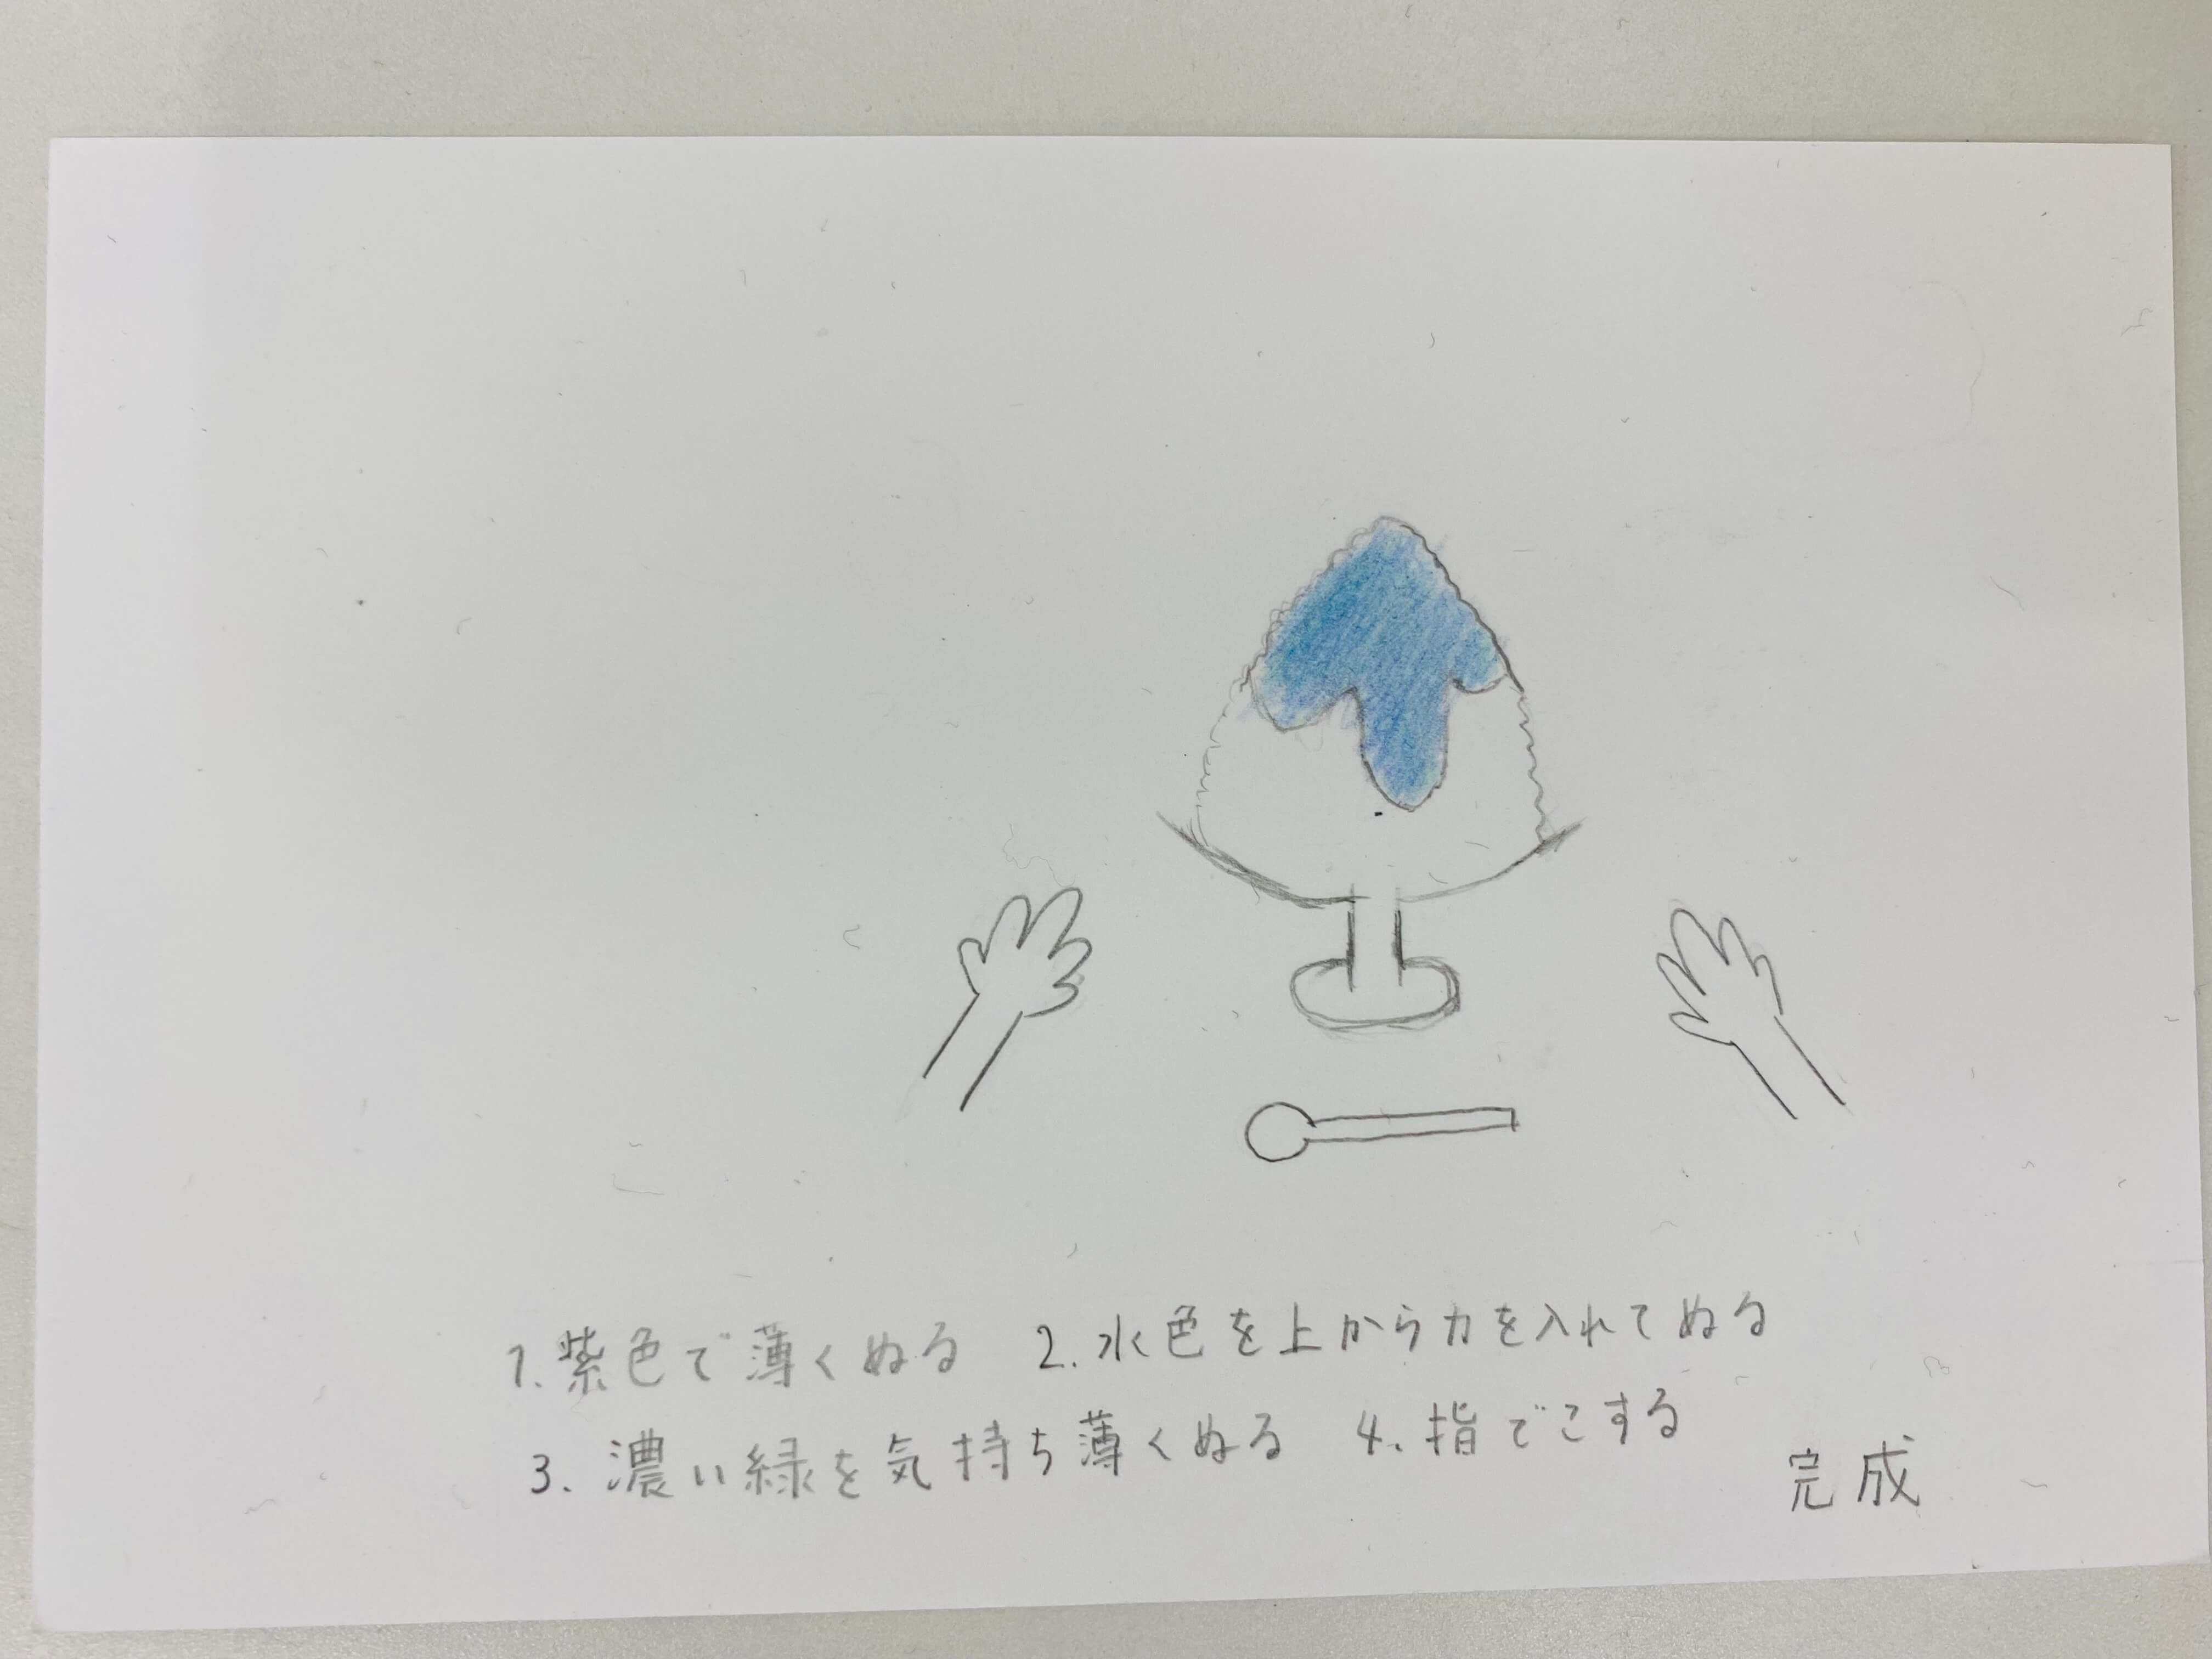 1. 紫色で薄くぬる 2. 水色を上から力を入れてぬる
3. 濃い緑を気持ち薄くぬる 4. 指でこする
完成